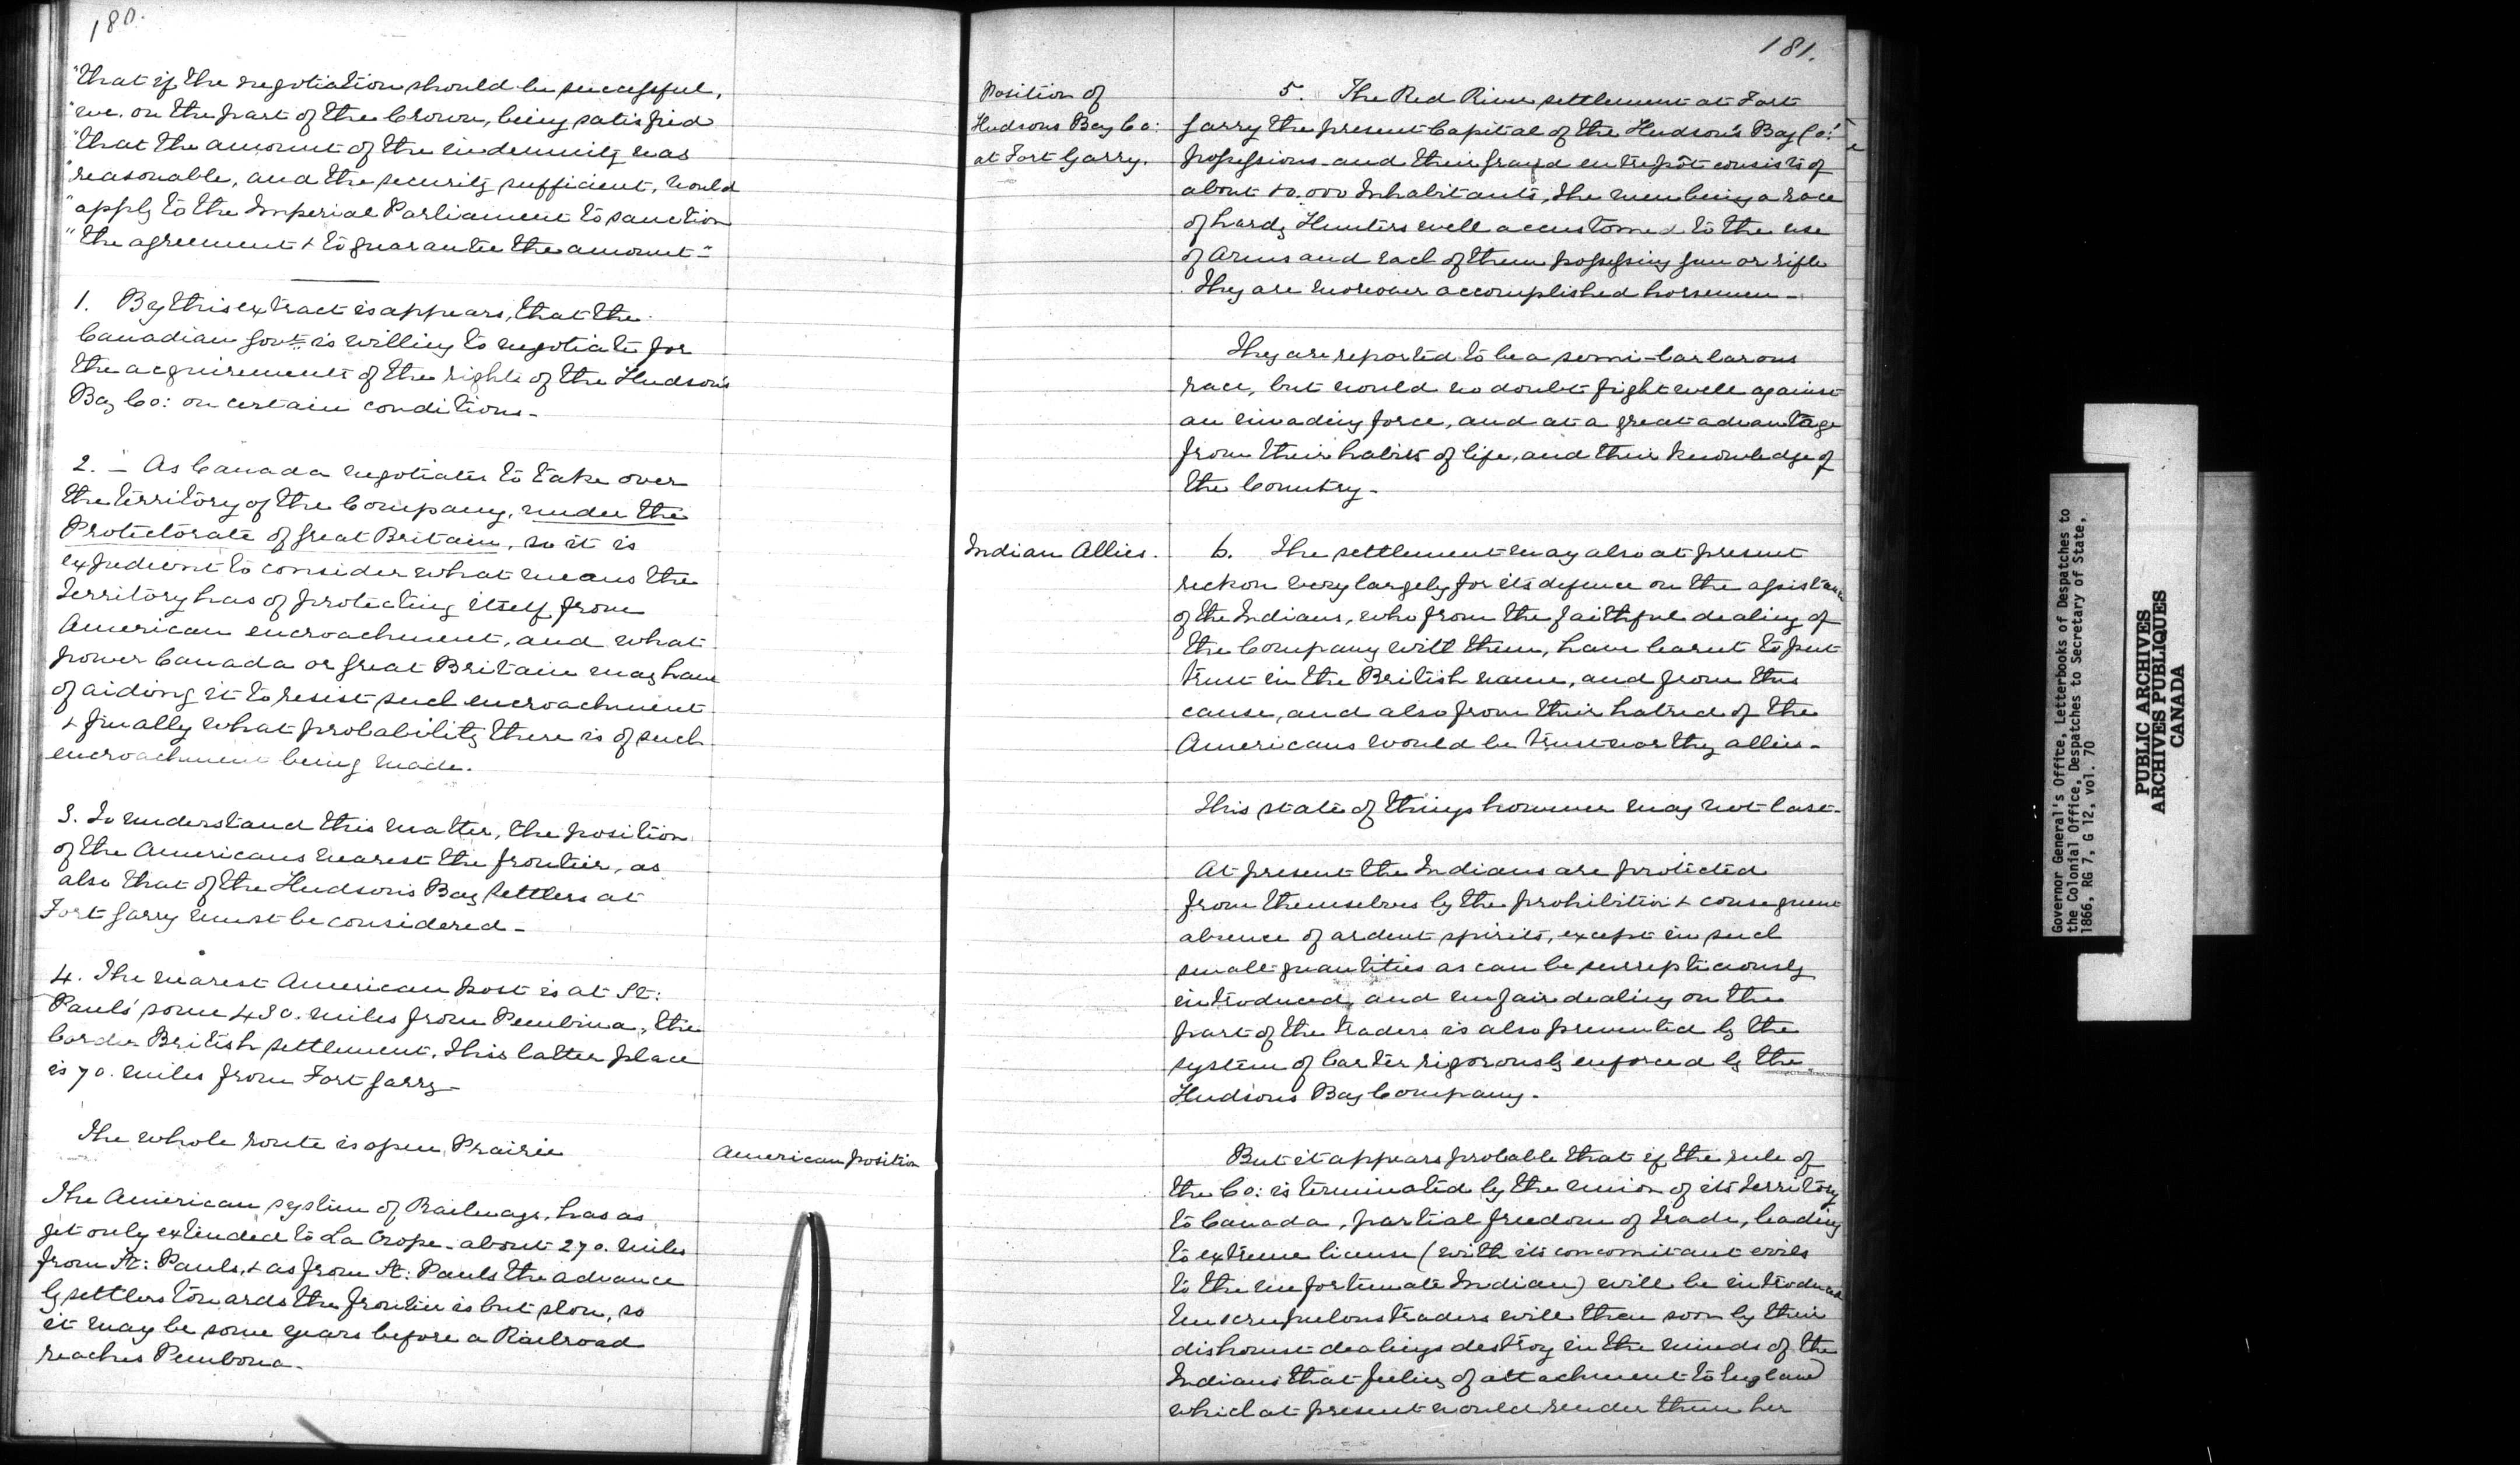 180.
"that if the negotiation should be successful,
"we, on the part of the Crown, being satisfied
"that the amount of the indemnity was
"reasonable, and the security sufficient, would
"apply to the Imperial Parliament to sanction
"the agreement & to guarantee the amount-"
1. By this extract it appears, that the
Canadian Govt. is willing to negotiate for
the acquirements of the rights of the Hudson's
Bay Co: on certain conditions-
2. - As Canada negotiates to take over
the territory of the Company, under the
Protectorate of Great Britain, so it is
expedient to consider what means the
Territory has of protecting itself from
American encroachment, and what
power Canada or Great Britain may have
of aiding it to resist such encroachment
& finally what probability there is of such
encroachment being made.
3. To understand this matter, the position
of the Americans nearest the frontier, as
also that of the Hudson's Bay Settlers at
Fort Garry must be considered-
4. The nearest American Post is at St:
Paul's some 450. miles from Pembina, the
border British settlement. This latter place
is 70. miles from Fort Garry-
The whole route is open Prairie
American position
The American system of Railways, has as
yet only extended to La Crosse- about 270. miles
from St: Pauls, & as from St: Pauls the advance
by settlers towards the frontier is but slow, so
it may be some years before a Railroad
reaches Pembina-
181.
Position of
Hudsons Bay Co:
at Fort Garry.
5. The Red River settlement at Fort
Garry the present Capital of the Hudson's Bay Co:'
possessions and their grand entrepôt consists of
about 10.000 Inhabitants, the men being a race
of hardy Hunters well accustomed to the use
of Arms and each of them possessing gun or rifle
They are moreover accomplished horsemen-
They are reported to be a semi-barbarous
race, but would no doubt fight well against
an invading force, and at a great advantage
from their habits of life, and their knowledge of
the Country-
Indian Allies.
6. The settlement may also at present
reckon very largely for its defence on the assistance
of the Indians, who from the faithful dealing of
the Company with them, have learnt to put
trust in the British name, and from this
cause, and also from their hatred of the
Americans would be trustworthy allies-
This state of things however may not last-
At present the Indians are protected
from themselves by the prohibition & consequent
absence of ardent spirits, except in such
small quantities as can be surreptiously
introduced, and unfair dealing on the
part of the traders is also prevented by the
system of barter rigorously enforced by the
Hudsons Bay Company-
But it appears probable that if the rule of
the Co: is terminated by the union of its territory
to Canada, partial freedom of trade, leading
to extreme license (with its concomitant evils
to the unfortunate Indian) will be introduced
Unscrupulous traders will then soon by their
dishonest dealings destroy in the minds of the
Indians that feeling of attachment to England
which at present would render them her
Governor General's Office, Letterbooks of Despatches to
the Colonial Office, Despatches to Secretary of State,
1866, RG 7, G 12, vol. 70
PUBLIC ARCHIVES
ARCHIVES PUBLIQUES
CANADA